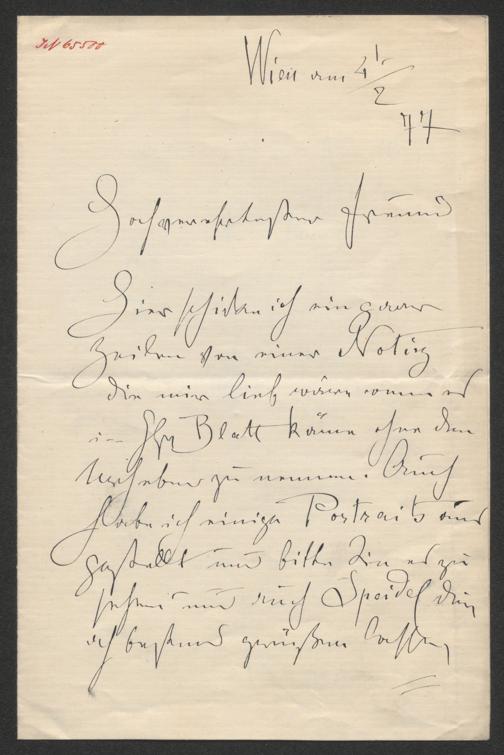 IN 65580
Wien am 4/2
77
Hochverehrtester Freund
Hier schicke ich ein paar
Zeilen von einer Notiz
die mir lieb wäre wenn es
in Ihr Blatt käme ohne den
Urheber zu nennen. Auch
habe ich einige Portraits aus
gestellt und bitte Sie es zu
sehen und auch Speidel den
ich bestens grüßen lasse,